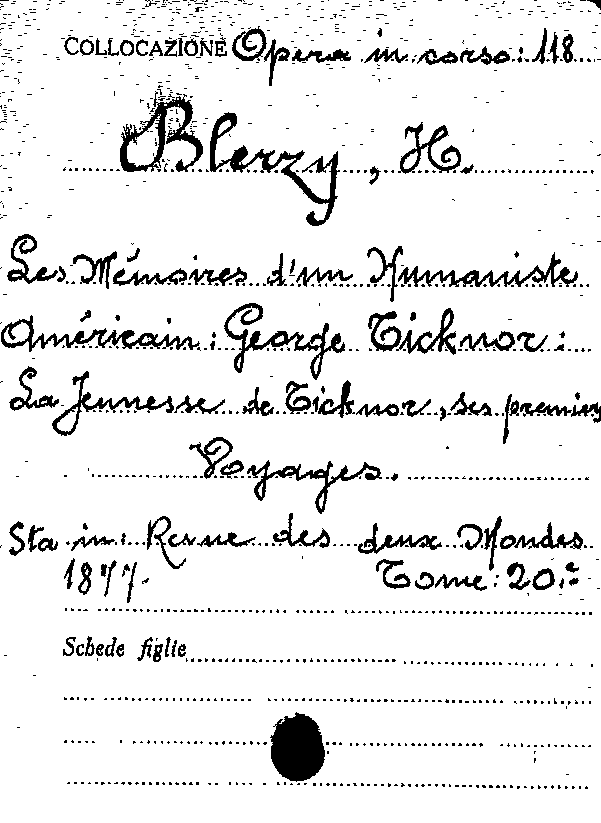 COLLOCAZIONE Opera in corso: 118
Blerzy, H.
Les Mémoires d'un Humaniste
Américain: George Ticknor:
La Jeunesse de Ticknor, ses premiers
Voyages.
Sta in: Revue des deux Mondes
1877. Tome: 20.e
Schede figlie